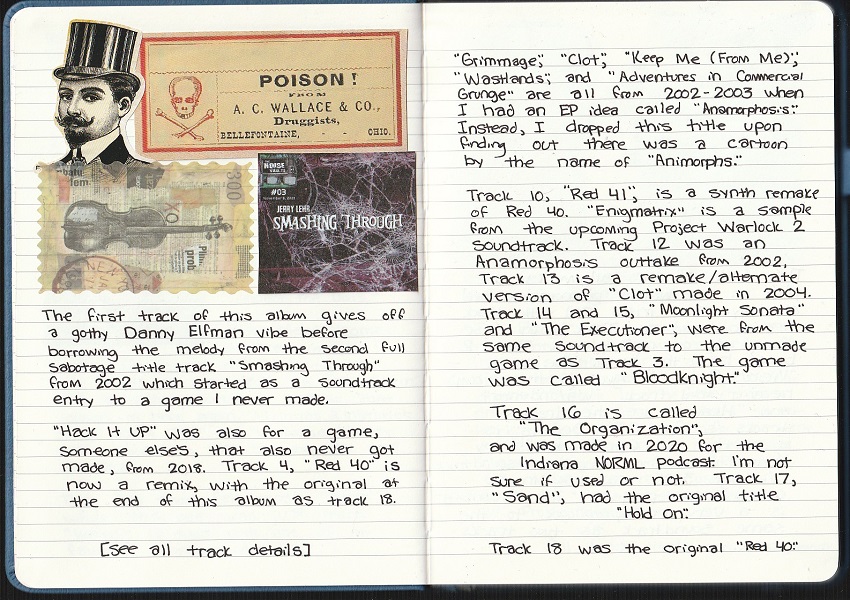 POISON!
FROM
A. C. WALLACE & CO.,
Druggists,
BELLEFONTAINE, - - OHIO.
300
NOISE
#03
JERRY LEHR
SMASHING THROUGH
The first track of this album gives off
a gothy Danny Elfman vibe before
borrowing the melody from the second full
Sabotage title track "Smashing Through"
from 2002 which started as a soundtrack
entry to a game I never made.
"Hack It UP" was also for a game,
someone else's, that also never got
made, from 2018. Track 4, "Red 40" is
now a remix, with the original at
the end of this album as track 18.
[See all track details]
"Grimmage", "Clot", "Keep Me (From Me)",
"Wastlands", and "Adventures in Commercial
Grunge" are all from 2002-2003 when
I had an EP idea called "Anamorphosis".
Instead, I dropped this title upon
finding out there was a cartoon
by the name of "Animorphs."
Track 10, "Red 41", is a synth remake
of Red 40. "Enigmatrix" is a sample
from the upcoming Project Warlock 2
soundtrack. Track 12 was an
Anamorphosis outtake from 2002,
Track 13 is a remake/alternate
version of "Clot" made in 2004.
Track 14 and 15, "Moonlight Sonata"
and "The Executioner", were from the
same soundtrack to the unmade
game as Track 3. The game
was called "Bloodknight."
Track 16 is called
"The Organization",
and was made in 2020 for the
Indiana NORML podcast. I'm not
sure if used or not. Track 17,
"Sand", had the original title
"Hold on".
Track 18 was the original "Red 40."